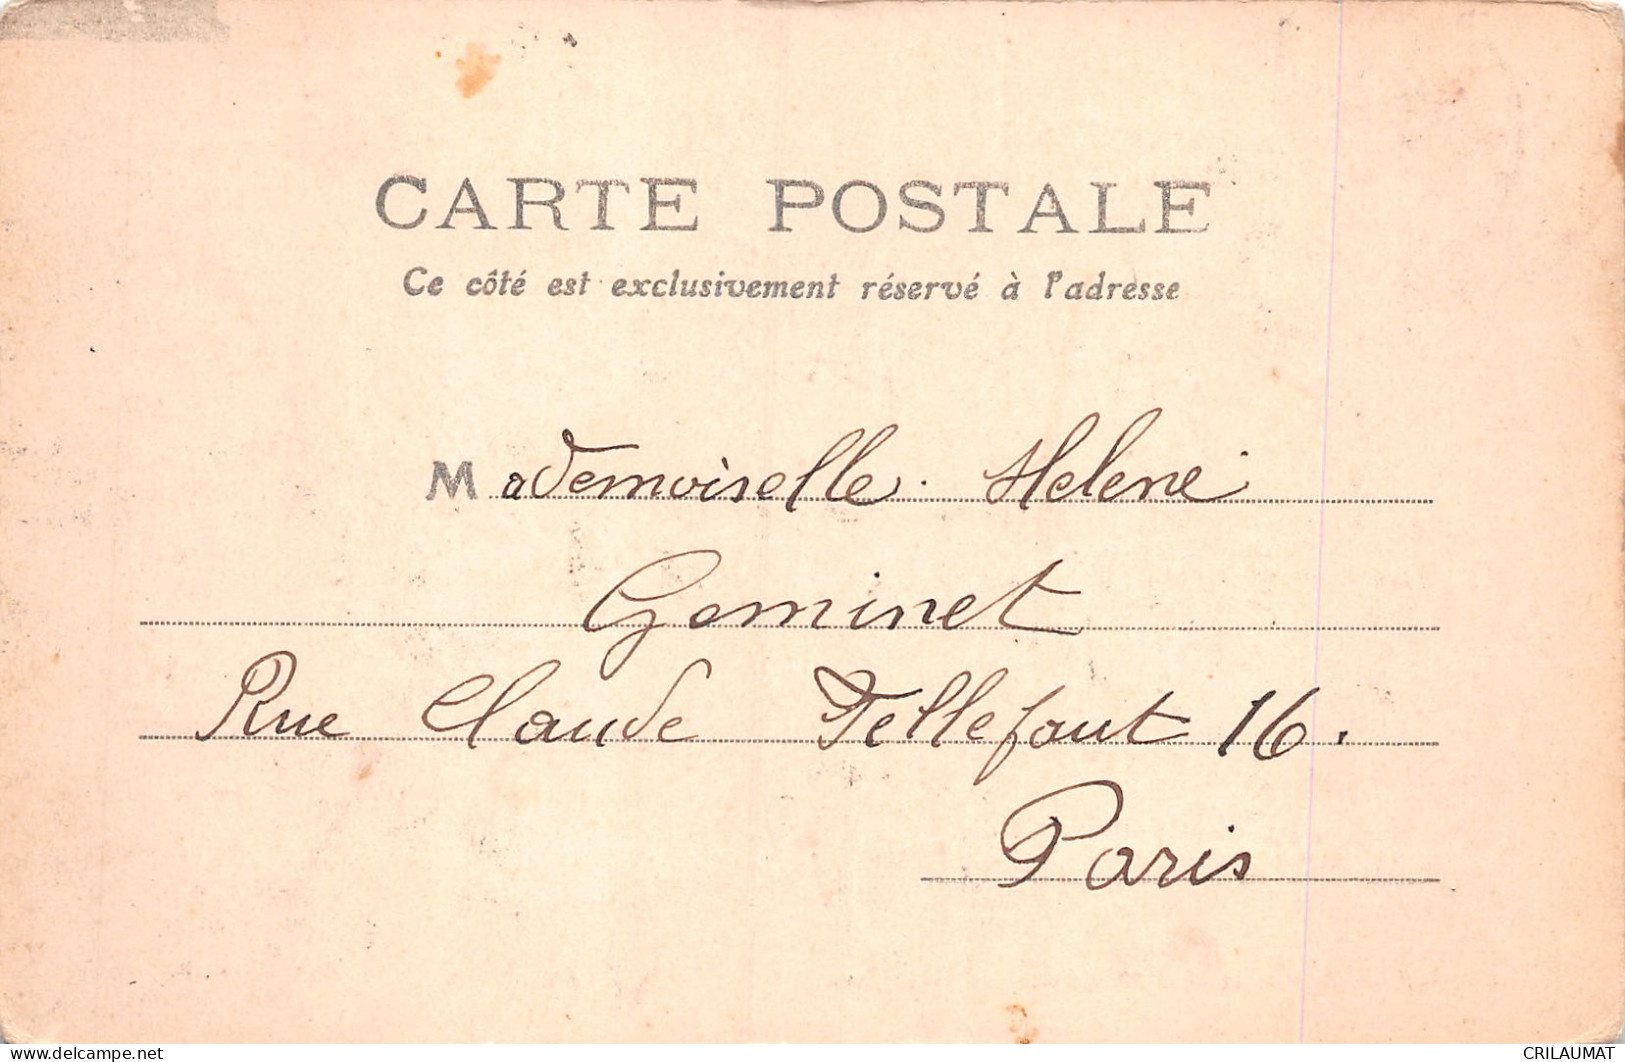 CARTE POSTALE
Ce côté est exclusivement réservé à l'adresse
Mademoiselle. Helene
Geminet
Rue Claude Tellefaut 16.
Paris
delcampe.net
CRILAUMAT